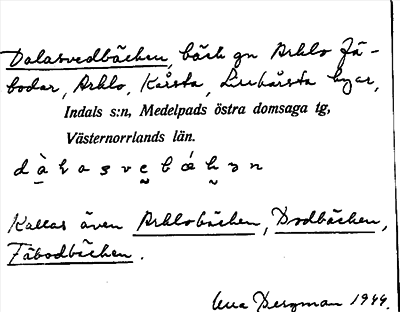 Dalasvedbäcken, bäck gn Arklo fä-
bodar, Arklo, Kårsta, Lillkårsta byar,
Indals s:n, Medelpads östra domsaga tg,
Västernorrlands län.
Kallas även Arklobäcken, Bodbäcken,
Fäbodbäcken.
Bergman 1944.